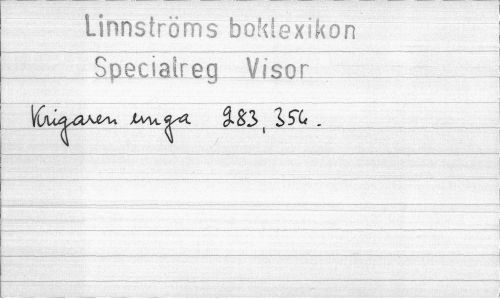 Linnströms boklexikon
Specialreg Visor
Krigaren unga 283, 354.